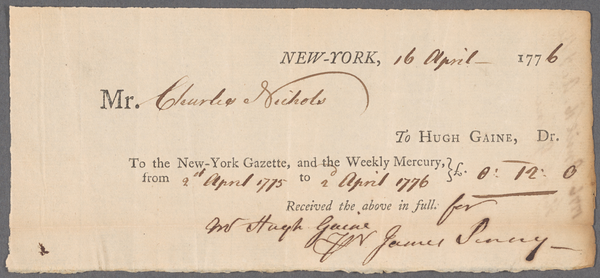 NEW-YORK, 16 April 1776
Mr. Charles Nichols
To HUGH GAINE, Dr.
To the New-York Gazette, and the Weekly Mercury, } £. 0: 12: 0
from 2d April 1775 to 2d April 1776
Received the above in full. for
Mr Hugh Gaine
James